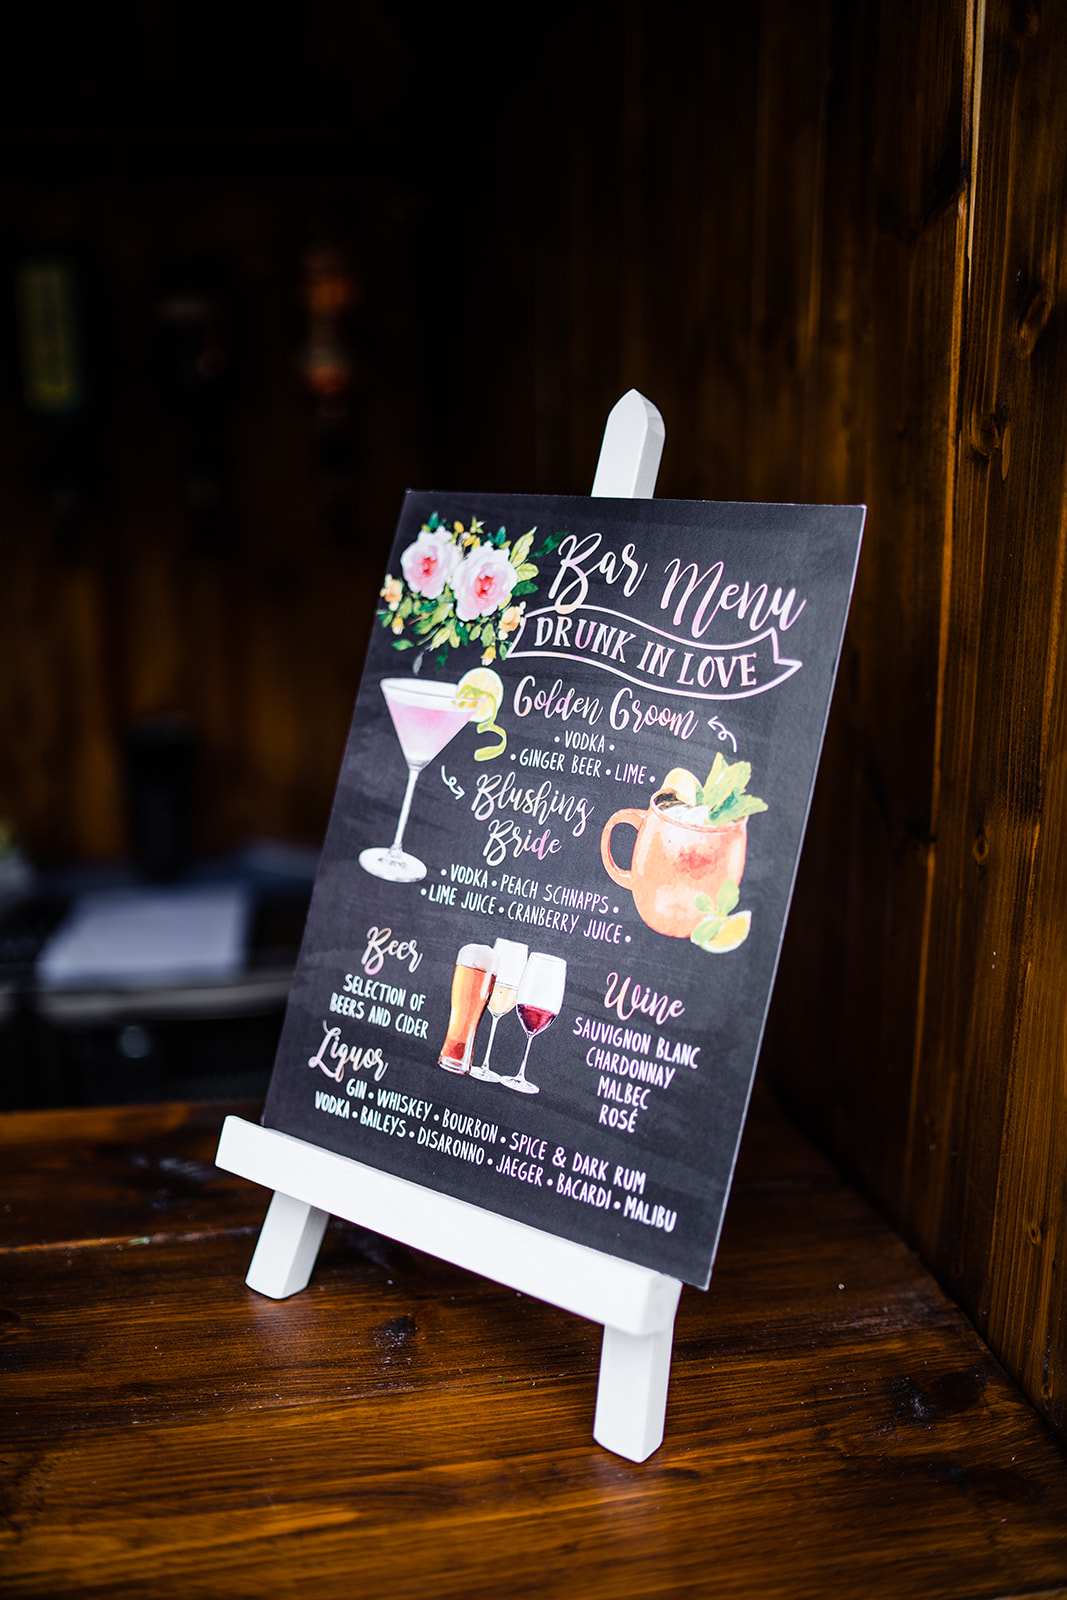 Bar Menu
DRUNK IN LOVE
Golden Groom
• VODKA •
• GINGER BEER • LIME •
Blushing
Bride
• VODKA • PEACH SCHNAPPS •
• LIME JUICE • CRANBERRY JUICE •
Beer
SELECTION OF
BEERS AND CIDER
Wine
SAUVIGNON BLANC
CHARDONNAY
MALBEC
ROSÉ
Liquor
GIN • WHISKEY • BOURBON • SPICE & DARK RUM
VODKA • BAILEYS • DISARONNO • JAEGER • BACARDI • MALIBU